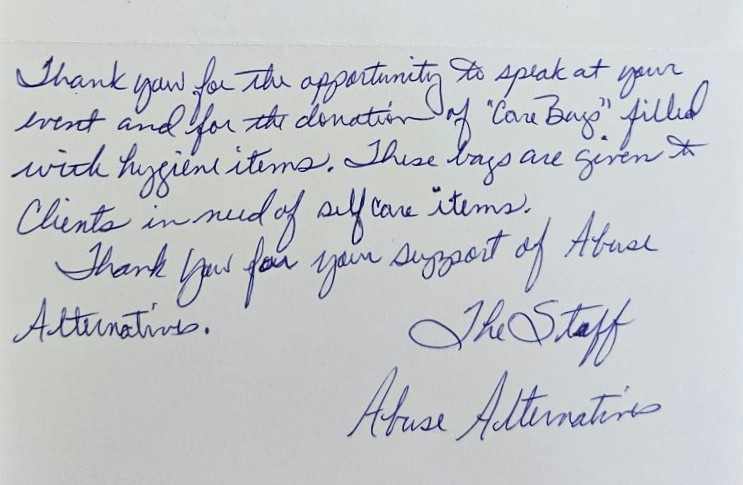 Thank you for the opportunity to speak at your
event and for the donation of "Care Bags" filled
with hygiene items. These bags are given to
Clients in need of self care items.
Thank you for your support of Abuse
Alternatives.
The Staff
Abuse Alternatives